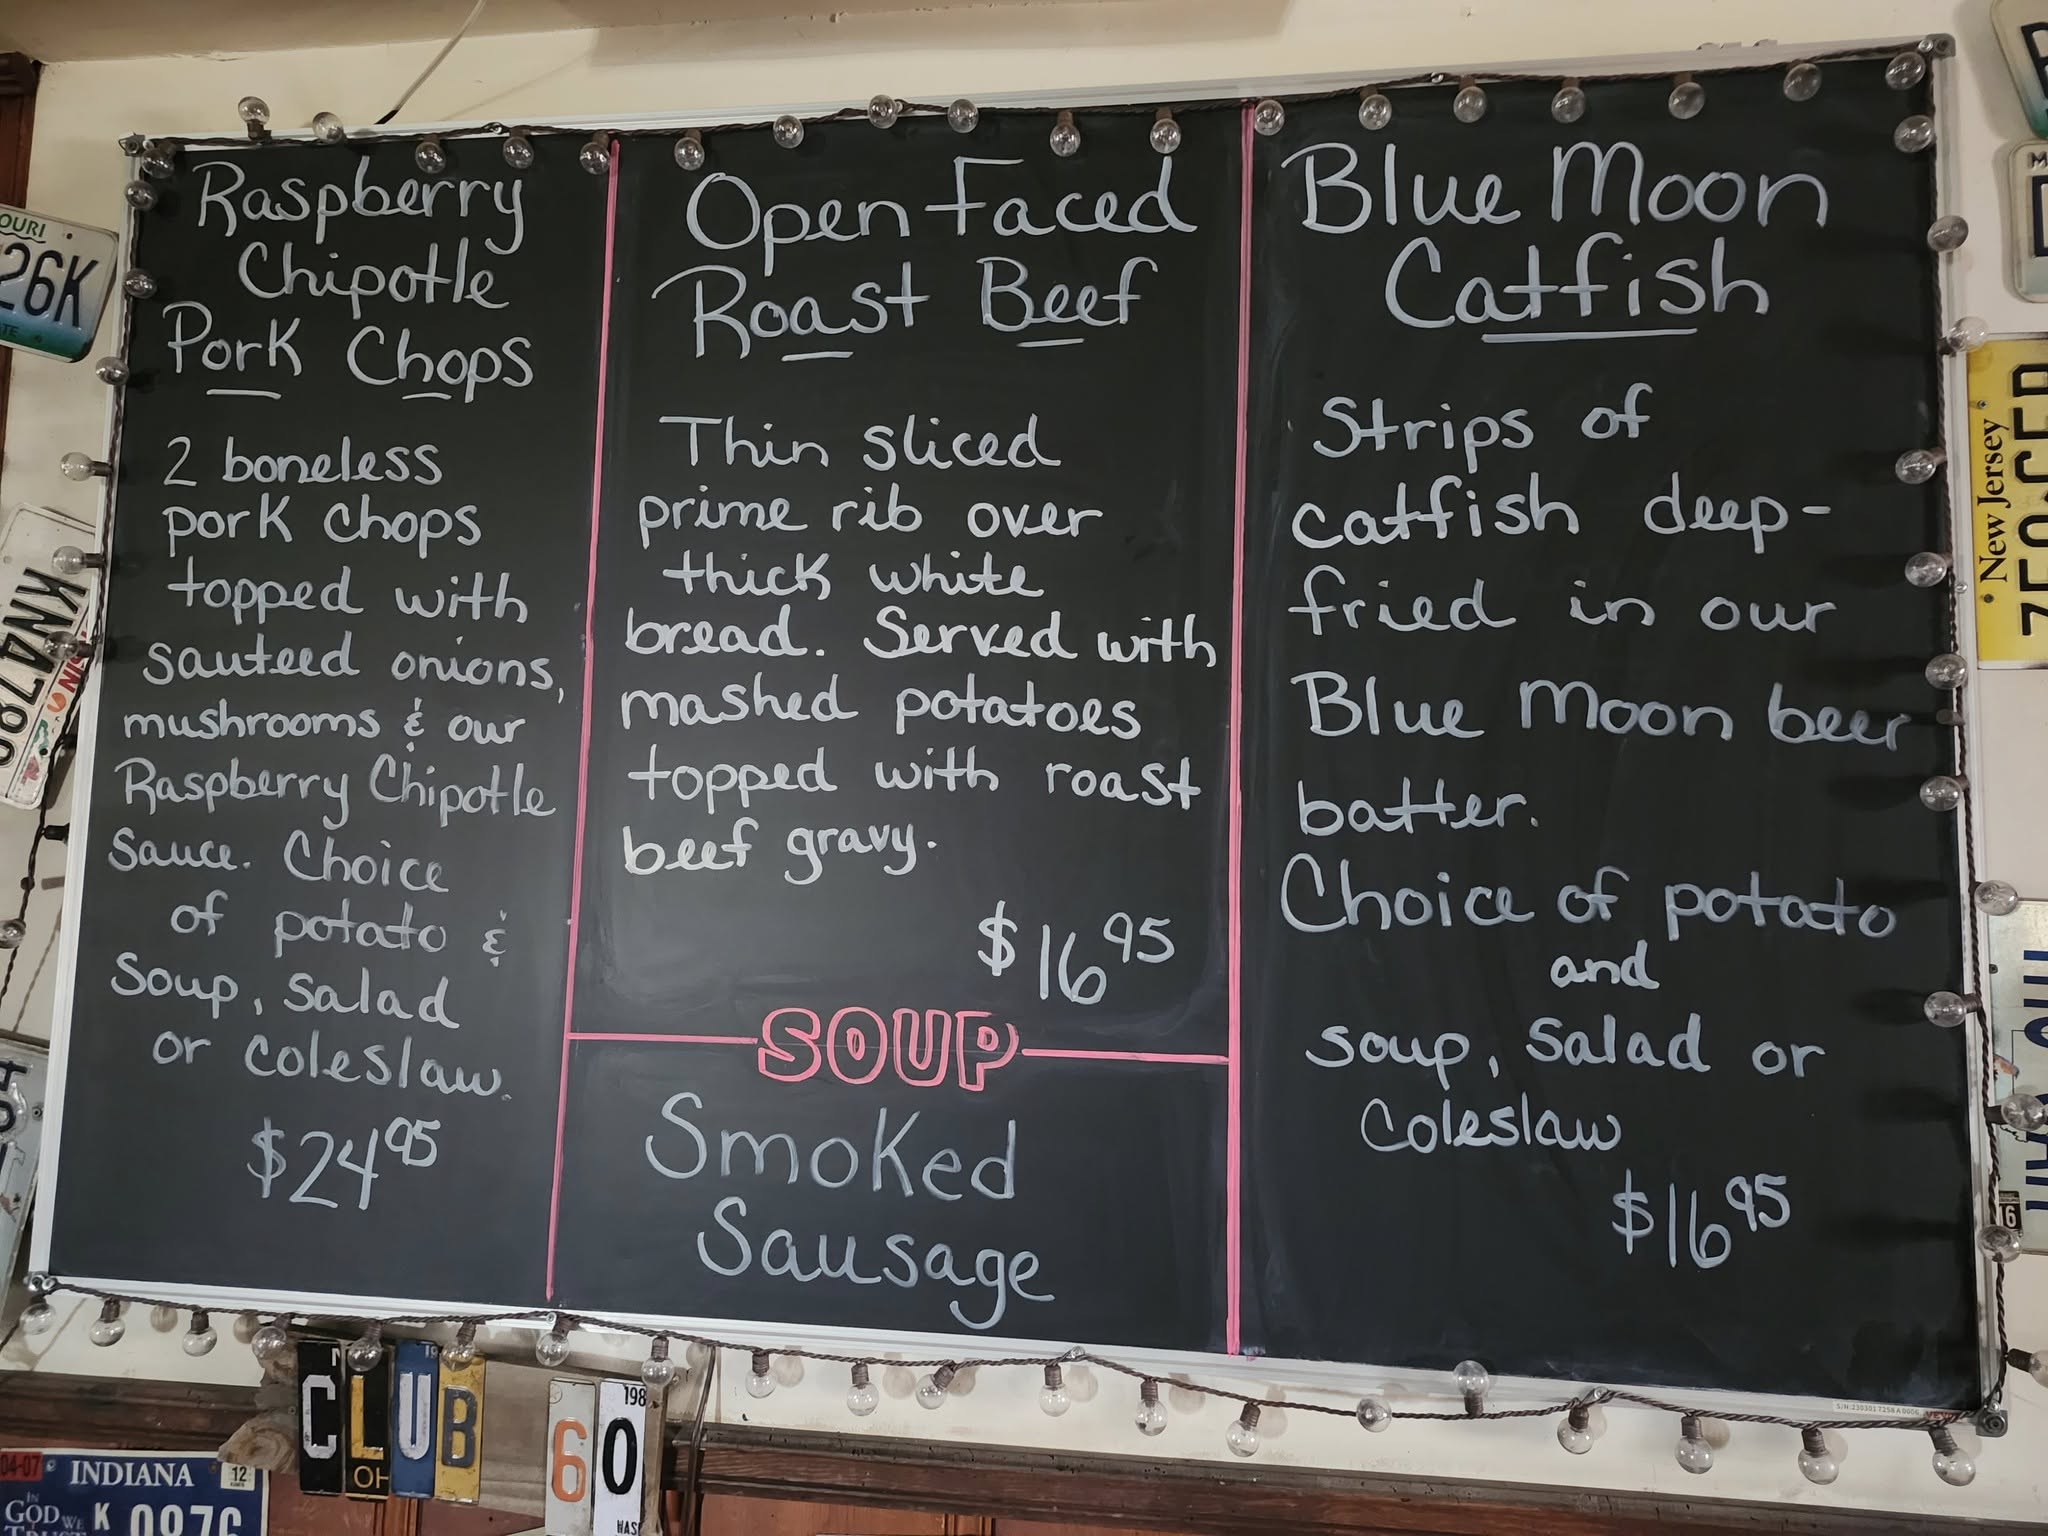 Raspberry
Chipotle
Pork Chops
2 boneless
pork chops
topped with
sauteed onions,
mushrooms & our
Raspberry Chipotle
Sauce. Choice
of potato &
Soup, salad
or coleslaw.
$24 95
Open Faced
Roast Beef
Thin sliced
prime rib over
thick white
bread. Served with
mashed potatoes
topped with roast
beef gravy.
$16 95
SOUP
Smoked
Sausage
Blue Moon
Catfish
Strips of
catfish deep-
fried in our
Blue Moon beer
batter.
Choice of potato
and
soup, salad or
Coleslaw
$16 95
OURI
26K
KNA788
New Jersey
CLUB
OH
60
198
04-07
INDIANA
12
IN
GOD WE
K 0876
16